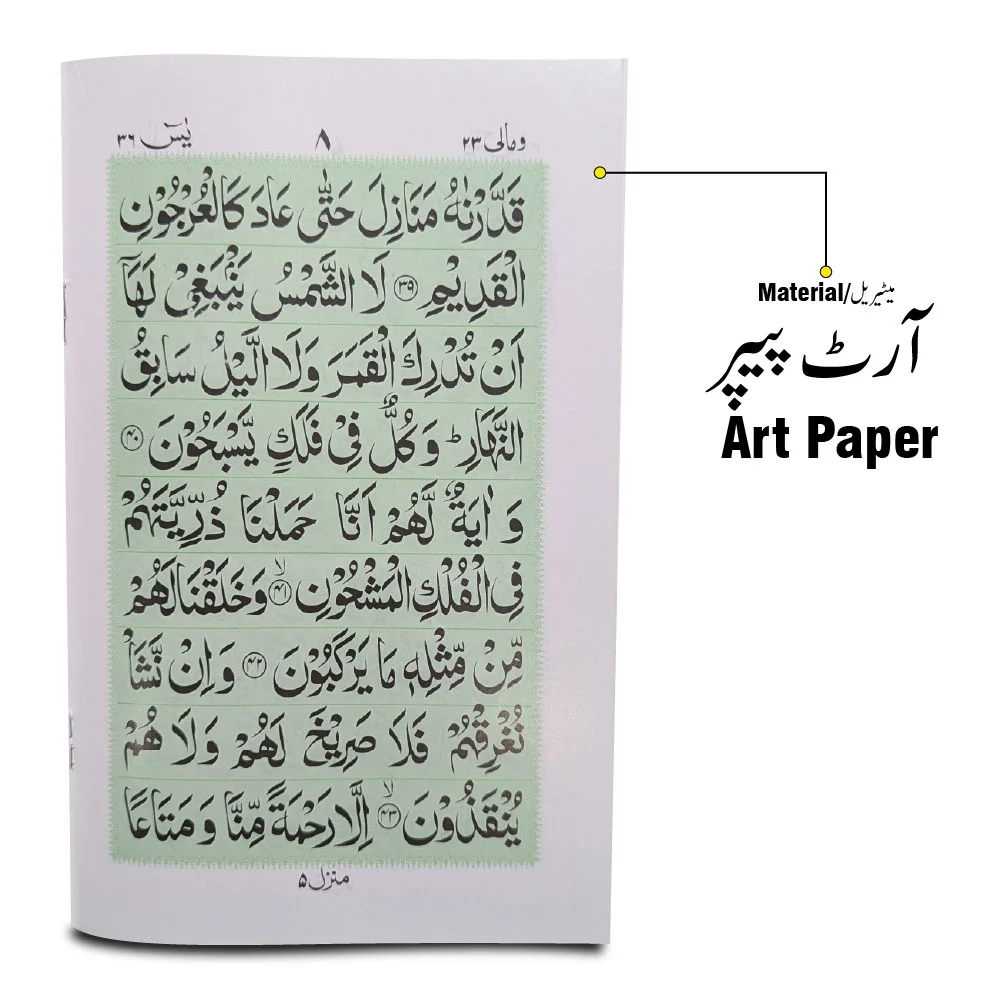 ومالی ۲۳ ۸ یٰسٓ ۳۶
قَدَّرْنٰهُ مَنَازِلَ حَتّٰى عَادَ كَالْعُرْجُوْنِ
الْقَدِيْمِ ۝۳۹ لَا الشَّمْسُ يَنْۢبَغِيْ لَهَاۤ
اَنْ تُدْرِكَ الْقَمَرَ وَلَا الَّيْلُ سَابِقُ
النَّهَارِ ؕ وَكُلٌّ فِيْ فَلَكٍ يَّسْبَحُوْنَ ۝۴۰
وَ اٰيَةٌ لَّهُمْ اَنَّا حَمَلْنَا ذُرِّيَّتَهُمْ
فِي الْفُلْكِ الْمَشْحُوْنِ ۙ۝۴۱ وَخَلَقْنَا لَهُمْ
مِّنْ مِّثْلِهٖ مَا يَرْكَبُوْنَ ۝۴۲ وَ اِنْ نَّشَاْ
نُغْرِقْهُمْ فَلَا صَرِيْخَ لَهُمْ وَلَا هُمْ
يُنْقَذُوْنَ ۙ۝۴۳ اِلَّا رَحْمَةً مِّنَّا وَ مَتَاعًا
منزل ۵
Material/میٹیریل
آرٹ پیپر
Art Paper